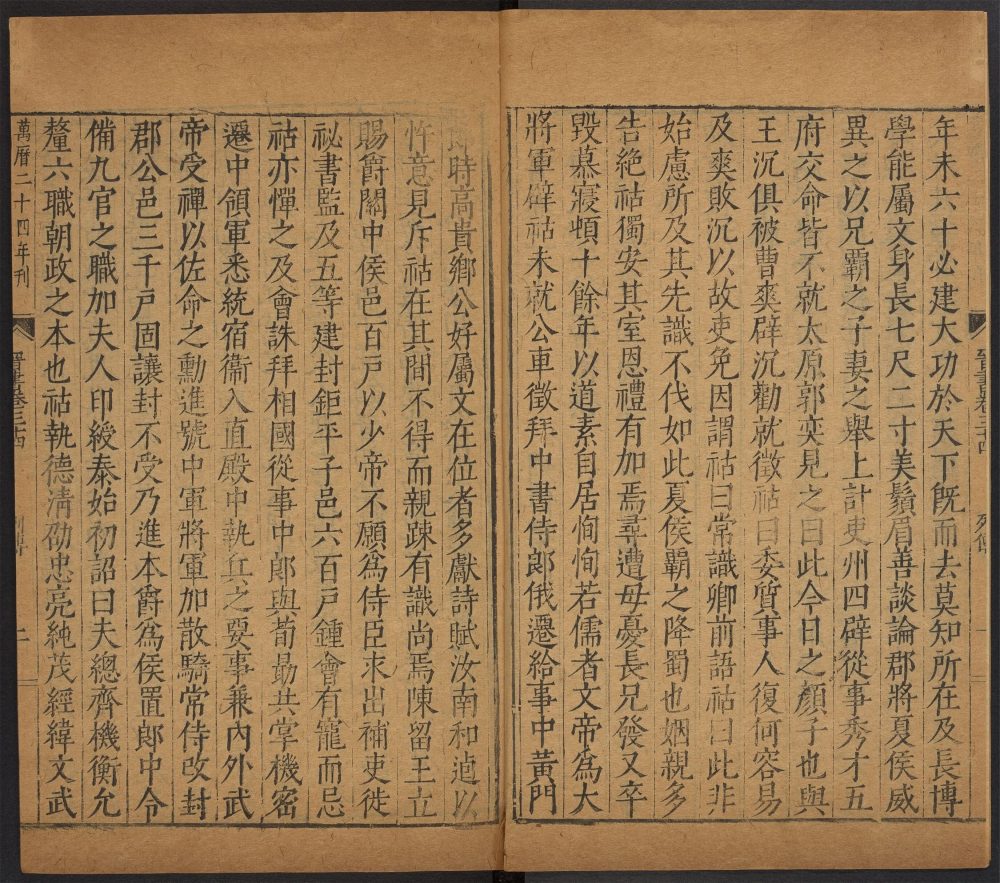 年未六十必建大功於天下旣而去莫知所在及長博
學能屬文身長七尺二寸美鬚眉善談論郡將夏侯威
異之以兄霸之子妻之舉上計吏州四辟從事秀才五
府交命皆不就太原郭奕見之曰此今日之顏子也與
王沉俱被曹爽辟沉勸就徵祜曰委質事人復何容易
及爽敗沉以故吏免因謂祜曰常識卿前語祜曰此非
始慮所及其先識不伐如此夏侯霸之降蜀也姻親多
告絕祜獨安其室恩禮有加焉尋遭母憂長兄發又卒
毀慕寢頓十餘年以道素自居恂恂若儒者文帝爲大
將軍辟祜未就公車徵拜中書侍郎俄遷給事中黃門
晉書卷三十四 列傳
時高貴鄉公好屬文在位者多獻詩賦汝南和逌以
忤意見斥祜在其間不得而親踈有識尚焉陳留王立
賜爵關中侯邑百戶以少帝不願爲侍臣求出補吏徙
祕書監及五等建封鉅平子邑六百戶鍾會有寵而忌
祜亦憚之及會誅拜相國從事中郎與荀勗共掌機密
遷中領軍悉統宿衞入直殿中執兵之要事兼內外武
帝受禪以佐命之勳進號中軍將軍加散騎常侍改封
郡公邑三千戶固讓封不受乃進本爵爲侯置郎中令
備九官之職加夫人印綬泰始初詔曰夫總齊機衡允
釐六職朝政之本也祜執德清劭忠亮純茂經緯文武
萬曆二十四年刊 晉書卷三十四 列傳 二